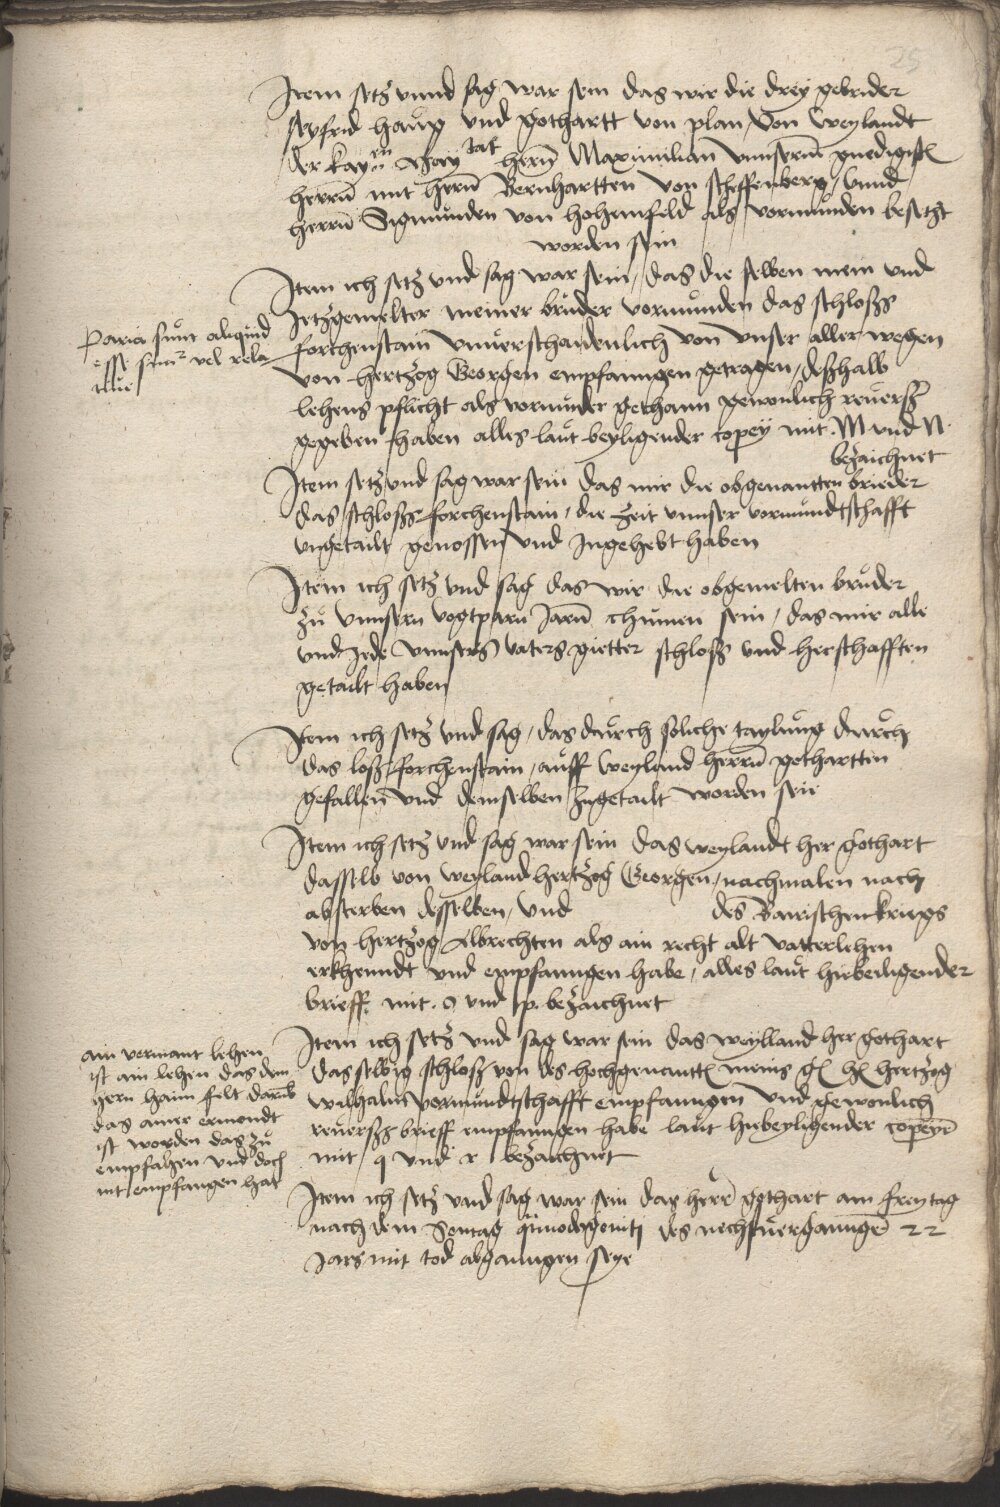 25
Item setz unnd sag war sein das wir die drey gebrider
seyfrid haug und gothartt von plan, von weylandt
der kayen May tat herrn Maximilian unnserm gnedigisten
herrn mit herrn Bernhartten von scheffenberg, unnd
herrn Sigmunden von hohenfeld als vormunden besetzt
worden sein
Item ich setz und sag war sein, das die selben mein und
Jetzgemelter meiner bruder vormunden das schloss
forchenstain unverschaidenlich von unser aller wegen
von hertzog Georgen empfanngen getragen, deßhalb
lehens pflicht als vormunder gethann gewonlich reuerß
gegeben haben alles laut beyligender copey mit . M und N .
bezaichnet
Item setz und sag war sein das mir die obgenantten brieder
das schloss forchenstain, die zeit unnser vormundtschafft
ungetailt genossen und Ingehebt haben
Item ich setz und sag das wir die obgemelten bruder
zu unnsern vogtparn Jarn chumen sein, das mir alle
und Jede unnsers vaters gietter schloss und herschafften
getailt haben
Item ich setz und sag, das durch soliche taylung durch
das loß forchenstain, auff weyland herrn gothartten
gefallen und demselben Zugetailt worden sein
Item ich setz und sag war sein das weylandt her gothart
dasselb von weyland hertzog Georgen, nachmalen nach
absterben desselben, und des Bairischen kriegs
von hertzog Albrechten als ain recht alt vatterlehen
erkhenndt und empfanngen habe, alles laut hiebeiligender
brieff mit . o und p . bezaichnet
Item ich setz und sag war sein das weylland her gothart
das selbig schloß von des hochgenantten meins g h hertzog
wilhalm vormundtschafft empfanngen und gewonlich
reuerss brieff empfanngen habe laut hiebeyligender copeyen
mit q und r bezaichnet
Item ich setz und sag war sein das herr gothart am freytag
nach dem Sontag quimodogeniti des nechstverganngen 22
Jars mit tod abganngen seye
Paria sunt aliquid
esse simr vel rela
tive
ain vermant lehen
ist ain lehen das dem
hern haim felt darumb
das ainer ermondt
ist worden das zu
empfahen und doch
nit empfangen hat